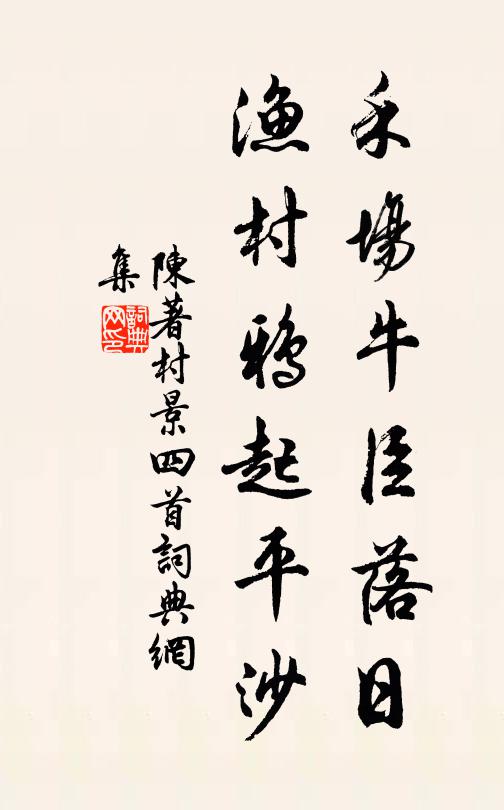 禾場牛臣落日
漁村鴉起平沙
陳著村景四首詞典網
集
詞典
网印